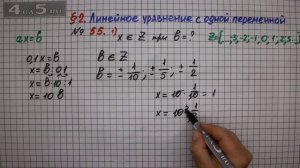 4ак5ru
§2. Линейное уравнение с одной переменной
ax=в №55. 1) x ∈ Z при в = ? Z={...,-3,-2,-1,0,1,2,3...}
0,1x = в
x = в : 0,1
x = в·10 : 1
x = 10в
в ∈ Z
в = ± 1/10 ; ± 1/5 ; ± 1/2
x = 10 · 1/10 = 1
x = 10